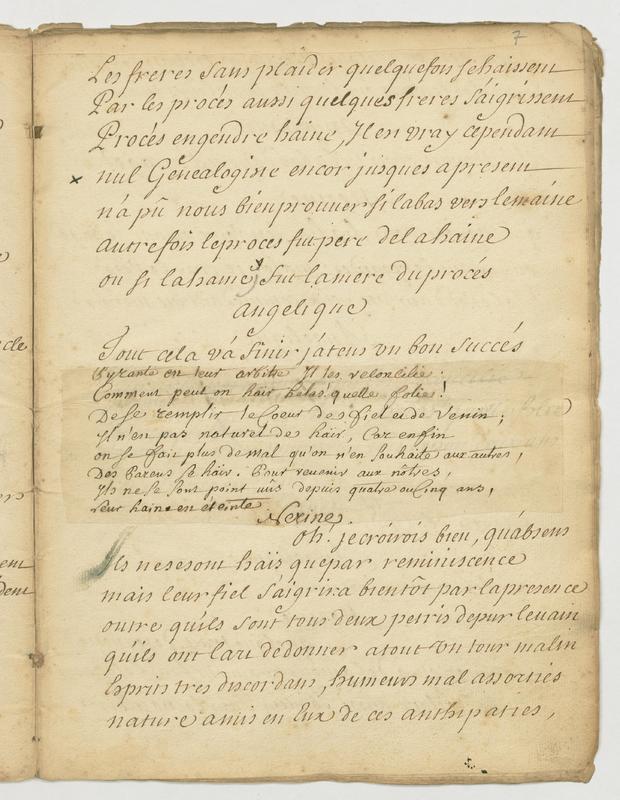 7
Les freres sans plaider quelquefois se haissent
Par les procés aussi quelques freres s'aigrissent
Procés engendre haine, Il en vray cependant
x nul Genealogiste encor jusques a present
n'a pû nous bien prouver si labas vers le maine
autrefois le proces fut pere de la haine
ou si la haine fut la mere du procés
angelique
Tout cela vá finir j'atens vn bon succés
en leur arbitre Il les reconcilie:
Comment peut on hair helas! quelle folie!
De se remplir le Coeur de fiel et de Venin;
Il n'en pas naturel de haïr, Car enfin
on se fait plus de mal qu'on n'en souhaite aux autres,
Des Parens se haïr. Pour revenir aux nôtres,
Ils ne se sont point vûs depuis quatre ou Cinq ans,
leur haine en eteinte
Nerine
Oh! je croirois bien, qu'absens
Ils ne se sont haïs que par reminiscence
mais leur fiel s'aigrira bientôt par la presence
outre qu'ils sont tous deux petris de pur levain
qu'ils ont l'art de donner a tout vn tour malin
Esprits tres discordans, humeurs mal assorties
nature a mis en Eux de ces anthipaties,